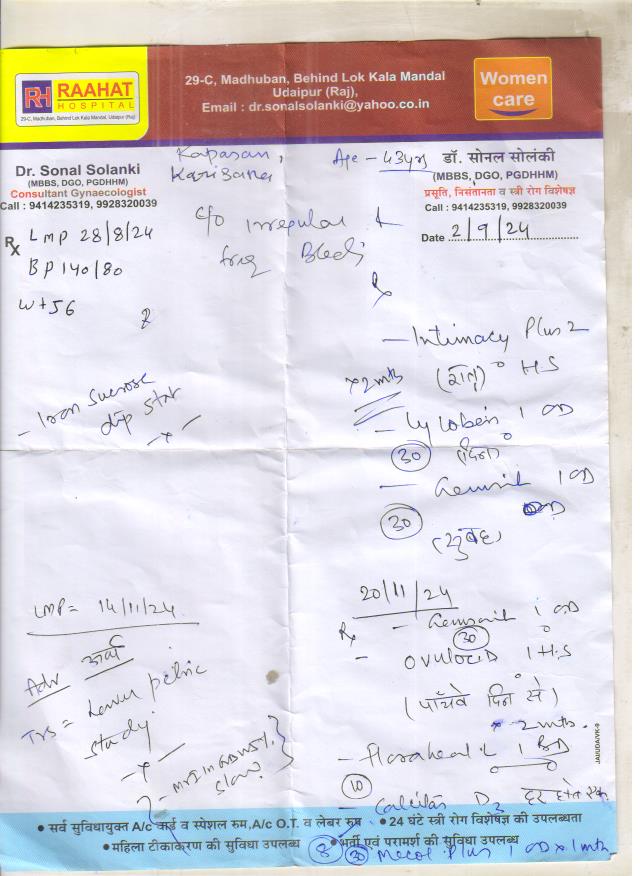 RH RAAHAT
HOSPITAL
29-C, Madhuban, Behind Lok Kala Mandal, Udaipur (Raj)
29-C, Madhuban, Behind Lok Kala Mandal
Udaipur (Raj),
Email : dr.sonalsolanki@yahoo.co.in
Women
care
Dr. Sonal Solanki
(MBBS, DGO, PGDHHM)
Consultant Gynaecologist
Call : 9414235319, 9928320039
Kapasan,
Age - 43 yrs
डॉ. सोनल सोलंकी
(MBBS, DGO, PGDHHM)
प्रसूति, निसंतानता व स्त्री रोग विशेषज्ञ
Call : 9414235319, 9928320039
Date 2/9/24
Rx LMP 28/8/24
BP 140/80
wt 56
c/o irregular +
freq Bleed
Rx
- Intimacy Plus 2
x 2 mth (रात) HS
- Iron Sucrose
dip stat
- Lycoben 1 OD
30
- 1 OD
30
OD
(सुबह)
LMP = 14/11/24
Adv
TVS = Lower pelvic
study
20/11/24
Rx - 1 OD
30
- OVULOC LD 1 HS
(पाँचवे दिन से)
x 2 mth.
- Floraheal L 1 BD
10
- D3
8 30 Mecol Plus 1 OD x 1 mth
• सर्व सुविधायुक्त A/c वार्ड व स्पेशल रुम,A/c O.T. व लेबर रुम • 24 घंटे स्त्री रोग विशेषज्ञ की उपलब्धता
• महिला टीकाकरण की सुविधा उपलब्ध • भर्ती एवं परामर्श की सुविधा उपलब्ध